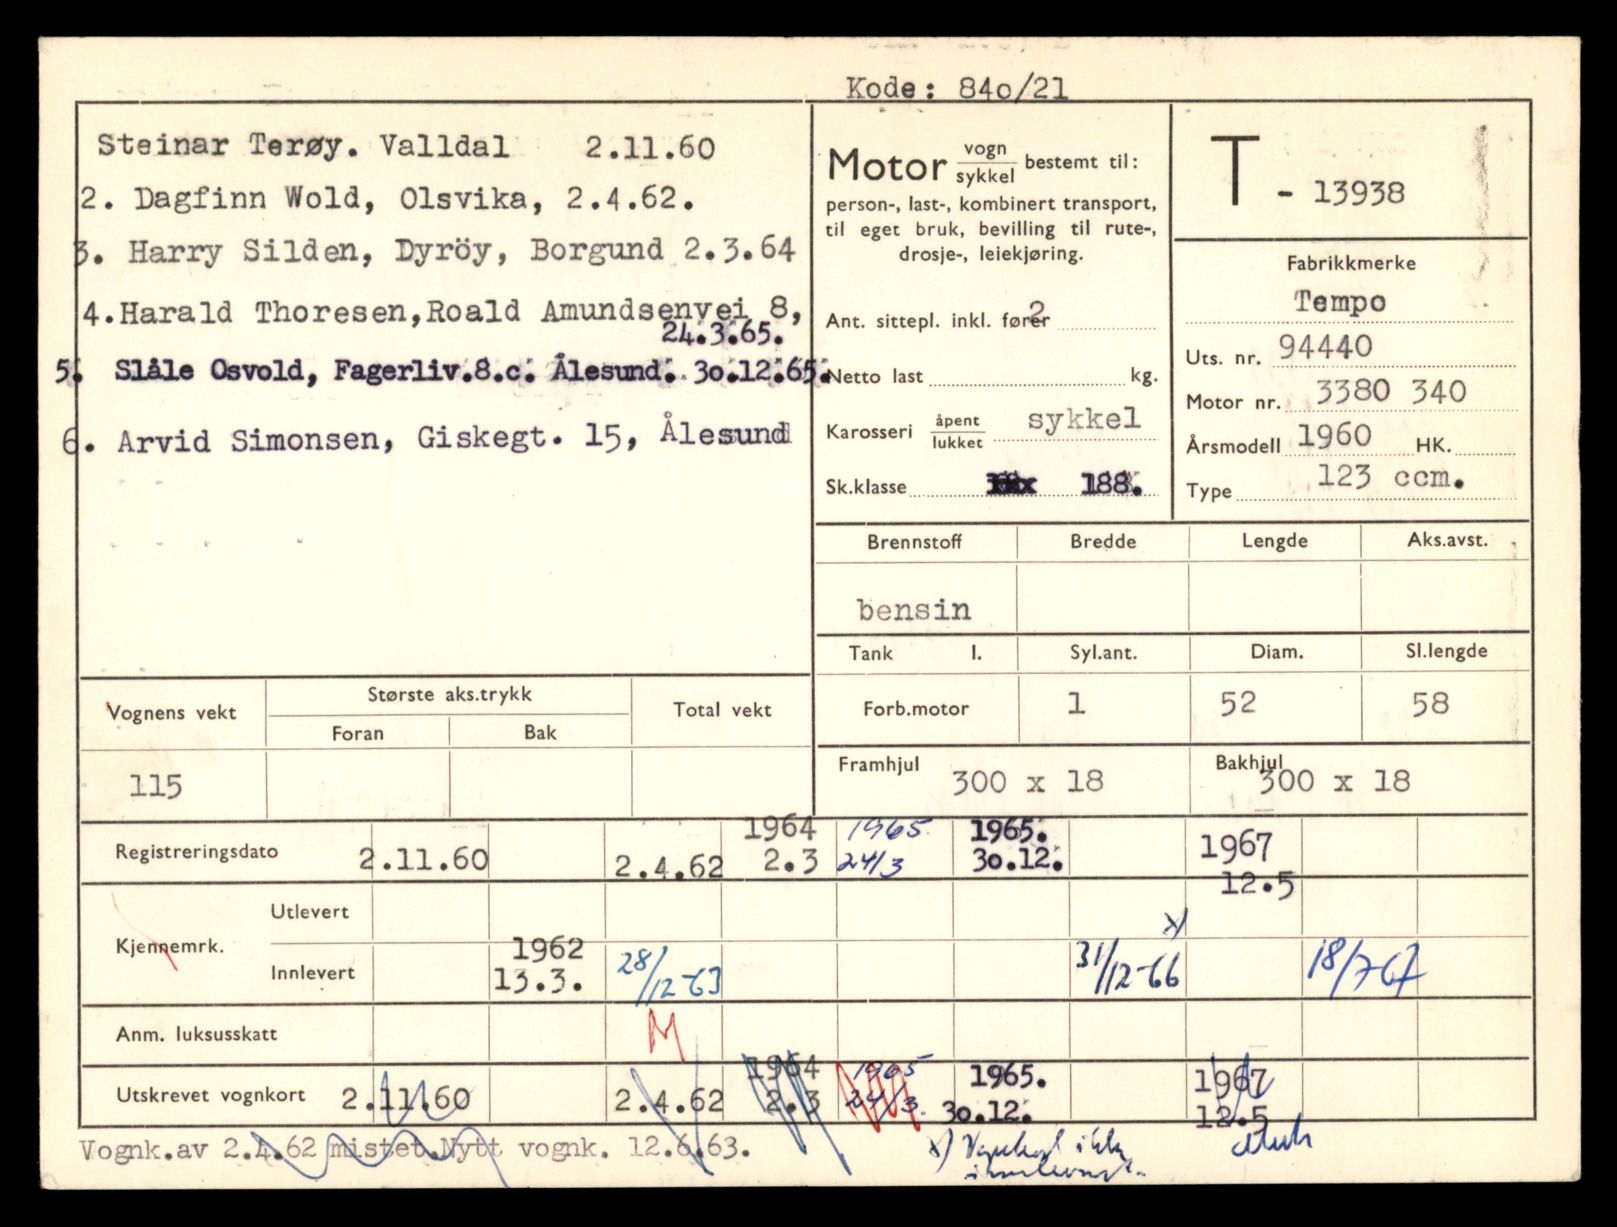 Kode: 840/21
Steinar Terøy. Valldal 2.11.60
2. Dagfinn Wold, Olsvika, 2.4.62.
3. Harry Silden, Dyröy, Borgund 2.3.64
4.Harald Thoresen,Roald Amundsenvei 8,
24.3.65.
5. Slåle Osvold, Fagerliv.8.c. Ålesund. 30.12.65.
6. Arvid Simonsen, Giskegt. 15, Ålesund
Motor vogn/sykkel bestemt til:
person-, last-, kombinert transport,
til eget bruk, bevilling til rute-,
drosje-, leiekjøring.
Ant. sittepl. inkl. fører 2
Netto last kg.
Karosseri åpent/lukket sykkel
Sk.klasse 188.
T - 13938
Fabrikkmerke
Tempo
Uts. nr. 94440
Motor nr. 3380 340
Årsmodell 1960 HK.
Type 123 ccm.
Brennstoff Bredde Lengde Aks.avst.
bensin
Tank l. Syl.ant. Diam. Sl.lengde
Forb.motor 1 52 58
Framhjul 300 x 18 Bakhjul 300 x 18
Vognens vekt Største aks.trykk Total vekt
Foran Bak
115
1964 1965 1965. 1967
Registreringsdato 2.11.60 2.4.62 2.3 24/3 30.12. 12.5
Utlevert x)
Kjennemrk.
1962
Innlevert 13.3. 28/12-63 31/12-66 18/7-67
Anm. luksusskatt M
1964 1965 1965. 1967
Utskrevet vognkort 2.11.60 2.4.62 2.3 24/3. 30.12. 12.5
Vognk.av 2.4.62 mistet.Nytt vognk. 12.6.63.
x) Vognkort ikke
innlevert.